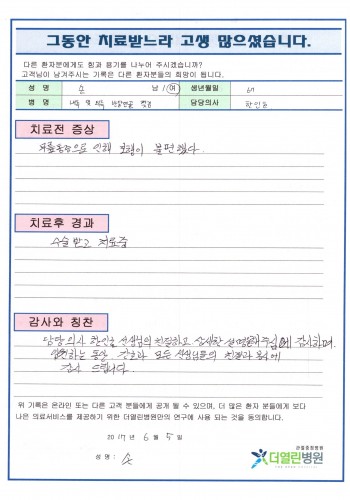 그동안 치료받느라 고생 많으셨습니다.
다른 환자분에게도 힘과 용기를 나누어 주시겠습니까?
고객님이 남겨주시는 기록은 다른 환자분들의 희망이 됩니다.
성 명 손 남 / 여 생년월일
병 명 담당의사
치료전 증상
으로 인해 보행이 불편했다.
치료후 경과
수술 받고 치료중
감사와 칭찬
담당의사 선생님의 친절하고 상세한 에 감사하며,
하는 동안 간호사 모든 선생님들의 친절과 에
감사 드립니다.
위 기록은 온라인 또는 다른 고객 분들에게 공개 될 수 있으며, 더 많은 환자 분들에게 보다
나은 의료서비스를 제공하기 위한 더열린병원만의 연구에 사용 되는 것을 동의합니다.
2017년 6월 5일
성 명 : 손
관절중점병원
더열린병원